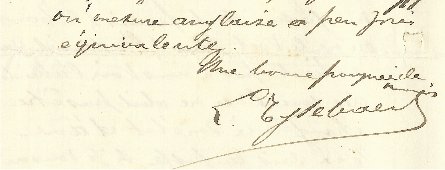 ou mesure anglaise à peu près
équivalente.
Une bonne poignée de
mains